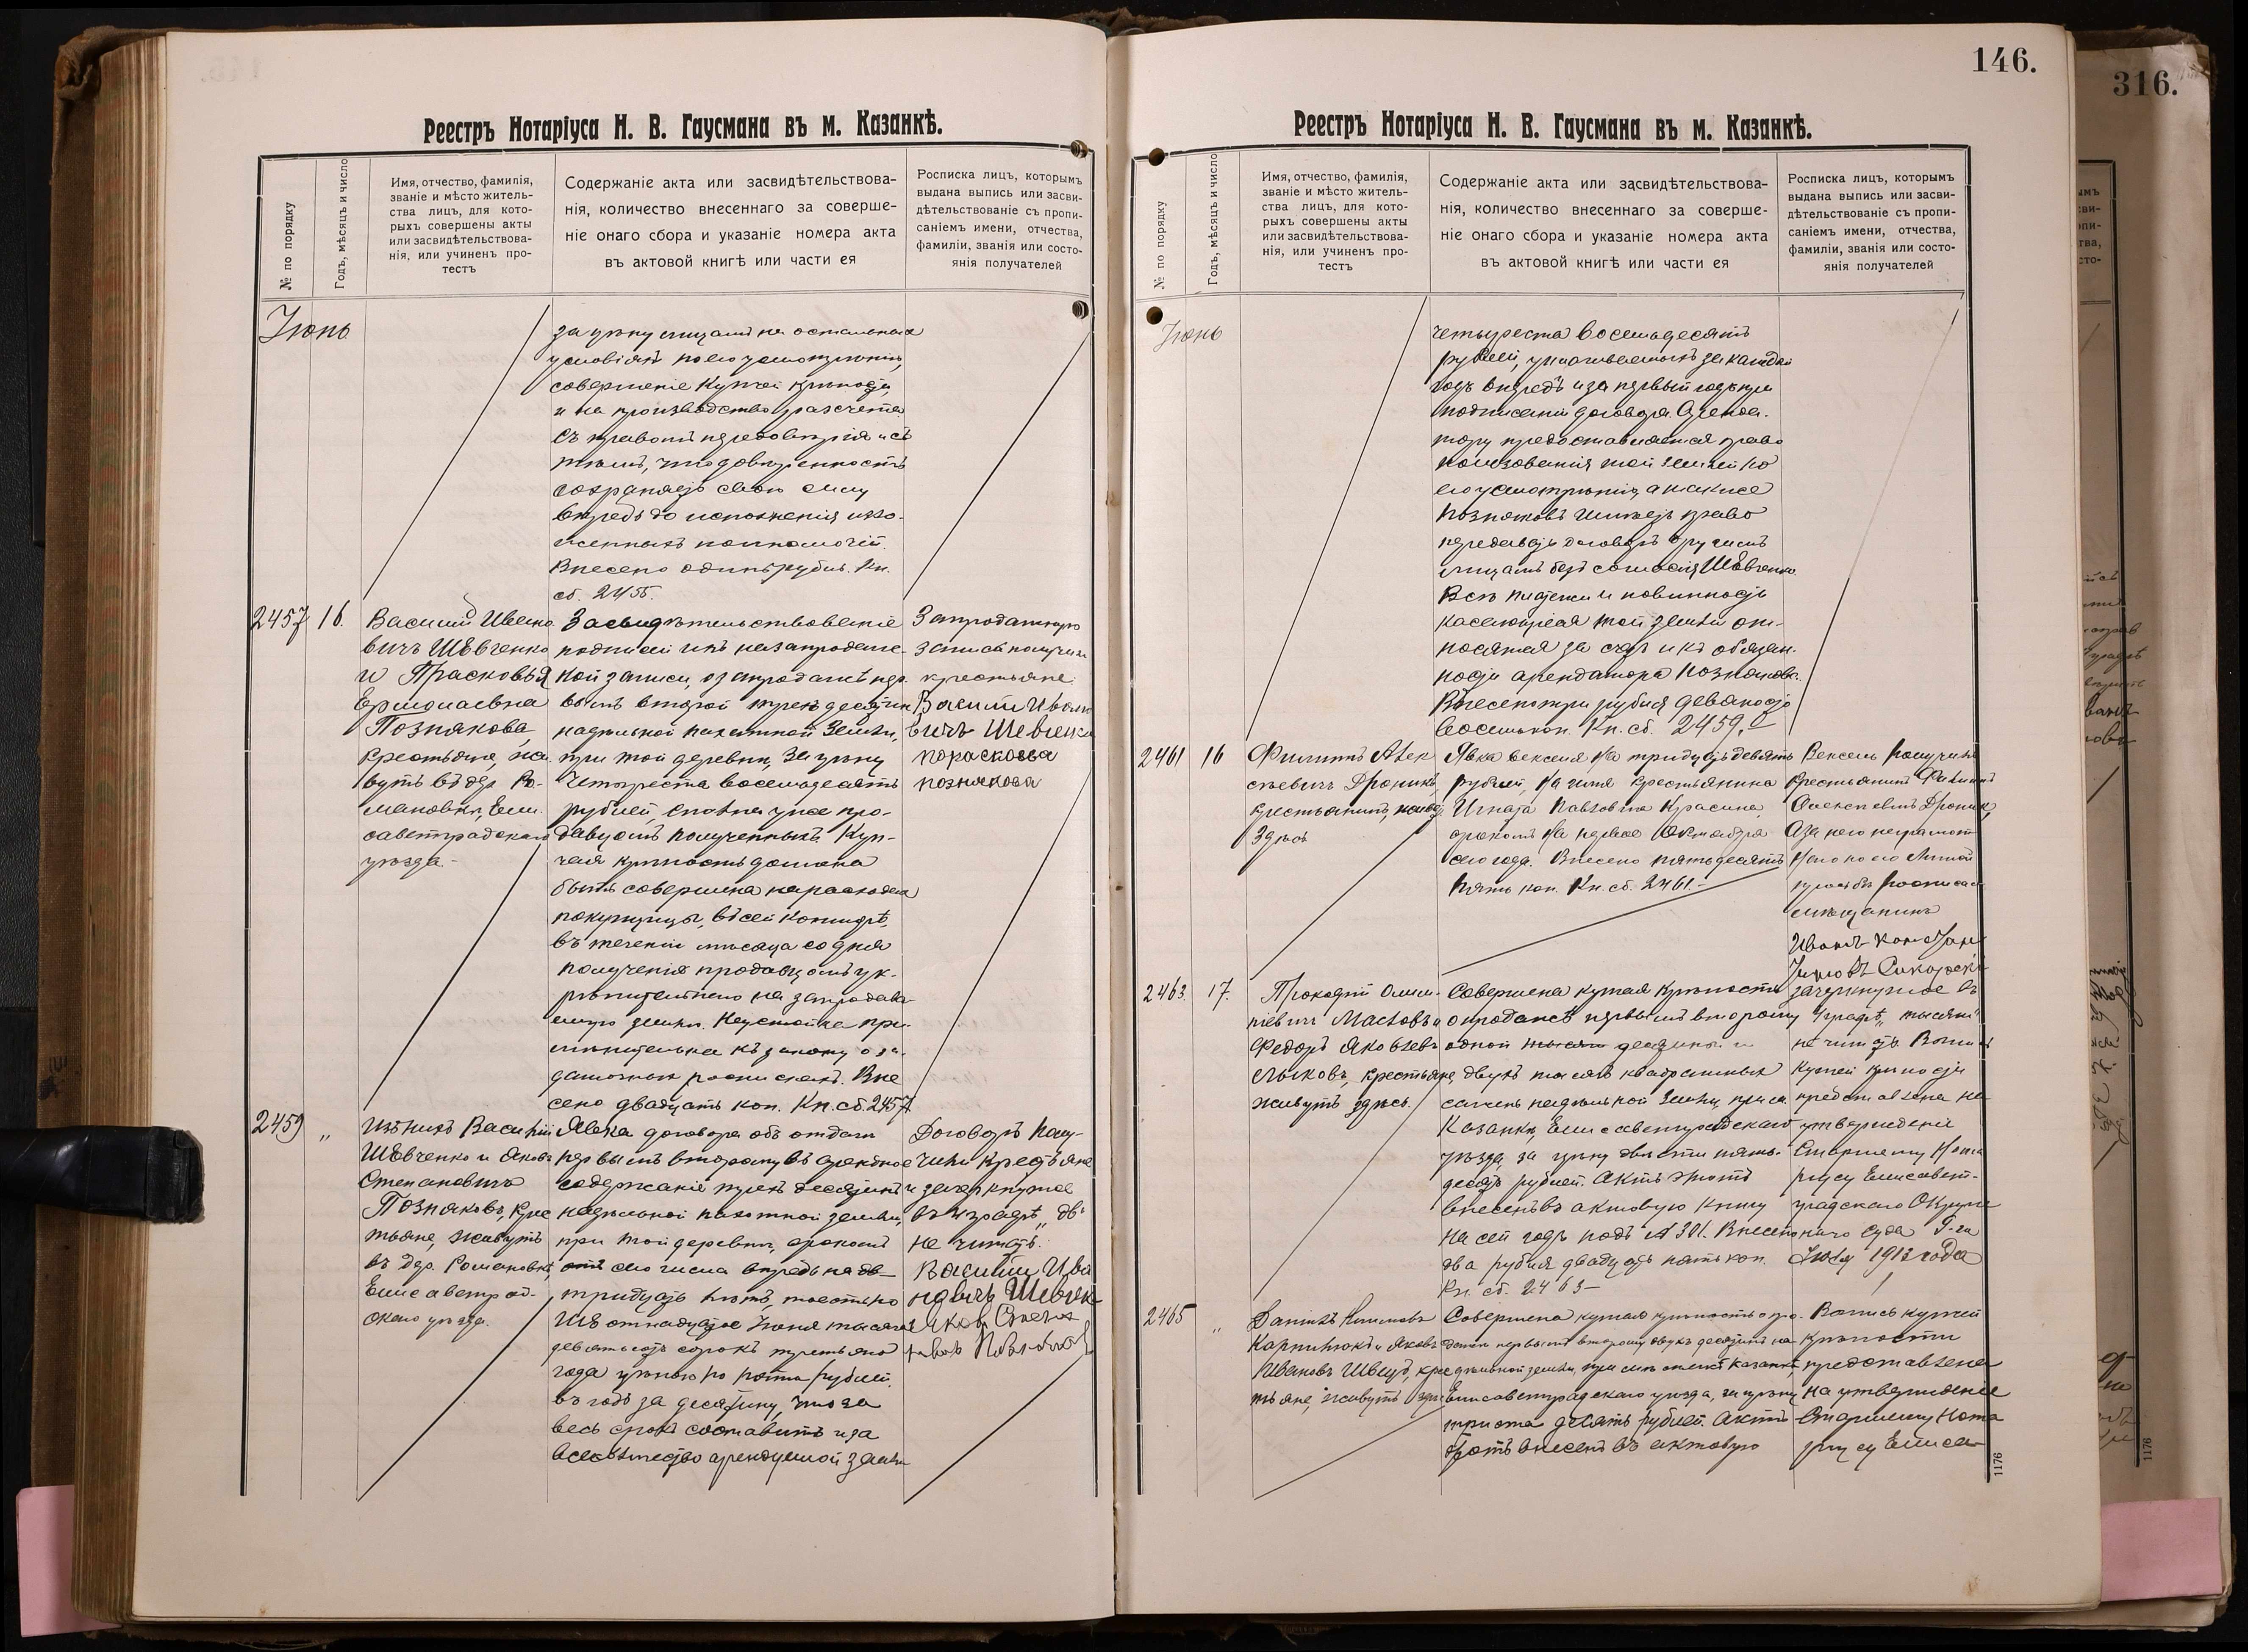 Реестръ Нотаріуса Н. В. Гаусмана въ м. Казанкѣ.
№ по порядку
Годъ, мѣсяцъ и число
Имя, отчество, фамилія,
званіе и мѣсто житель-
ства лицъ, для кото-
рыхъ совершены акты
или засвидѣтельствова-
нія, или учиненъ про-
тестъ
Содержаніе акта или засвидѣтельствова-
нія, количество внесеннаго за соверше-
ніе онаго сбора и указаніе номера акта
въ актовой книгѣ или части ея
Росписка лицъ, которымъ
выдана выпись или засви-
дѣтельствованіе съ пропи-
саніемъ имени, отчества,
фамиліи, званія или состо-
янія получателей
Іюнь
за цѣну лицамъ на остальныхъ
условіяхъ по его усмотрѣнію,
совершеніе купчей крѣпости,
и на производство разсчета
съ правомъ передовѣрія и съ
тѣмъ, что довѣренность
сохраняетъ свою силу
впредь до исполненія изло-
женныхъ полномочій.
Внесено одинъ рубль. Кн.
сб. 2455.
2457
16.
Василій Ивано
вичъ Шевченко
и Прасковья
Ермолаевна
Познякова,
крестьяне, жи
вутъ въ дер. Ро-
мановкѣ, Ели-
саветградскаго
уѣзда.-
Засвидѣтельствованіе
подписи ихъ на запродаж-
ной записи, о запродажѣ пер-
вымъ второй трехъ десятин
надѣльной пахатной земли,
при той деревни, за цѣну
Четыреста восемьдесятъ
рублей, сполна уже про-
давцомъ полученныхъ. Куп-
чая крѣпость должна
быть совершена на расходы
покупщицы, въ сей конторѣ,
въ теченіи мѣсяца со дня
полученія продавцомъ ук-
рѣпительнаго на запродава-
емую землю. Неустойка при-
мѣнительна къ закону о за-
даточныхъ роспискахъ. Вне
сено двадцать коп. Кн. сб. 2457.
Запродажную
запись получили
крестьяне
Василий Ивано
вичъ Шевченко
порасковья
познякова
2459
„
Изъ нихъ Василій
Шевченко и Яковъ
Степановичъ
Позняковъ, кре
тьяне, живутъ
въ дер. Романовкѣ,
Елисаветград-
скаго уѣзда.
Явка договора объ отдачѣ
первымъ второму въ арендное
содержаніе трехъ десятинъ
надѣльной пахотной земли,
при той деревни, срокомъ
отъ сего числа впредь на дв
тридцать лѣтъ, то есть по
Шестнадцатое Іюня тысяча
девятьсотъ сорокъ третьяго
года цѣною по пяти рублей
въ годъ за десятину, что за
весь срокъ составитъ и за
все количество арендуемой земли
Договоръ полу-
чили крестьяне
и зачеркнутое
въ 4 графѣ „дв"
не читать.
Василий Ива
новичъ Шевченко
Яковъ Степа
новъ
146.
Реестръ Нотаріуса Н. В. Гаусмана въ м. Казанкѣ.
№ по порядку
Годъ, мѣсяцъ и число
Имя, отчество, фамилія,
званіе и мѣсто житель-
ства лицъ, для кото-
рыхъ совершены акты
или засвидѣтельствова-
нія, или учиненъ про-
тестъ
Содержаніе акта или засвидѣтельствова-
нія, количество внесеннаго за соверше-
ніе онаго сбора и указаніе номера акта
въ актовой книгѣ или части ея
Росписка лицъ, которымъ
выдана выпись или засви-
дѣтельствованіе съ пропи-
саніемъ имени, отчества,
фамиліи, званія или состо-
янія получателей
Іюнь
четыреста восемьдесятъ
рублей, уплачиваемыхъ за каждый
годъ впередъ и за первый годъ при
подписаніи договора. Аренда-
тору предоставляется право
пользованія той землей по
его усмотрѣнію, а также
Позняковъ имѣетъ право
передавать договоръ другимъ
лицамъ безъ согласія Шевченко.
Всѣ платежи и повинности
касающіеся той земли от-
носятся за счетъ и къ обязан-
ности арендатора Познякова.
Внесено три рубля девяносто
восемь коп. Кн. сб. 2459.
2461
16
Филиппъ Алек
сѣевичъ Дроникъ,
крестьянинъ, живетъ
здѣсь
Явка векселя на тридцать девять
рублей, на имя крестьянина
Игната Павловича Красина,
срокомъ на первое Октября
сего года. Внесено пятьдесятъ
пять коп. Кн. сб. 2461.-
Вексель получилъ
Крестьянинъ Филиппъ
Алексѣевичъ Дроникъ,
а за него неграмот
наго по его личной
просьбѣ росписался
мѣщанинъ
Иванъ Констан
тиновъ Сикорскій
2463.
17.
Прокофій Олим-
піевичъ Масловъ и
Федоръ Яковлевъ
Лысковъ, крестьяне,
живутъ здѣсь.
Совершена купчая крѣпость
о продажѣ первымъ второму
одной тысячи десятины и
двухъ тысячъ квадратныхъ
сажень надѣльной земли, при м.
Казанкѣ, Елисаветградскаго
уѣзда, за цѣну двѣсти пять-
десятъ рублей. Актъ этотъ
внесенъ въ актовую книгу
на сей годъ подъ № 301. Внесено
два рубля двадцать пять коп.
Кн. сб. 2463-
зачеркнутое въ
4 графѣ „тысячи"
не читать. Выпись
купчей крѣпости
представлена на
утвержденіе
Старшему Нота
ріусу Елисавет-
градскаго Окруж
наго Суда 5-го
Іюля 1913 года
2465
„
Даніилъ
Карпилюкъ и Яковъ
Ивановъ Швецъ, кре
тьяне, живутъ здѣсь
Совершена купчая крѣпость о про-
дажѣ первымъ второму двухъ десятинъ на-
дѣльной земли, при мѣстечкѣ Казанкѣ,
Елисаветградскаго уѣзда, за цѣну
триста десять рублей. Актъ
этотъ внесенъ въ актовую
Выпись купчей
крѣпости
представлена
на утвержденіе
Старшему Нота
ріусу Елиса-
1176
316.
1176